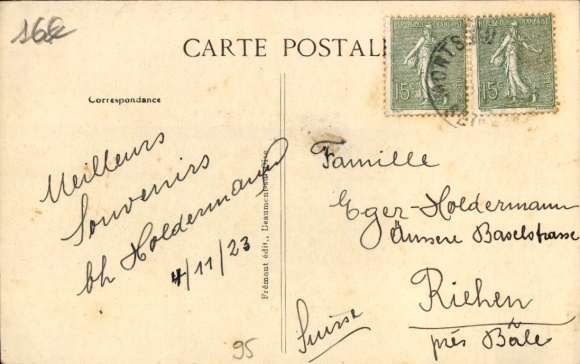 16€
CARTE POSTALE
RÉPUBLIQUE FRANÇAISE
15c
15c
Correspondance
Meilleurs
Souvenirs
Ch Holdermann
4/11/23
Frémont édit., Beaumont-sur-Oise
Famille
Eger-Holdermann
Äussere Baselstrasse
Riehen
près Bâle
Suisse
95